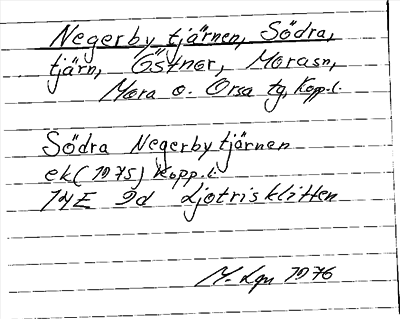 Negerby tjärnen, Södra,
tjärn, Östnor, Morasn,
Mora o. Orsa tg, Kopp.l.
Södra Negerbytjärnen
ek (1975) Kopp.l.
14E 9d Ljotrisklitten
M-Lgn 1976